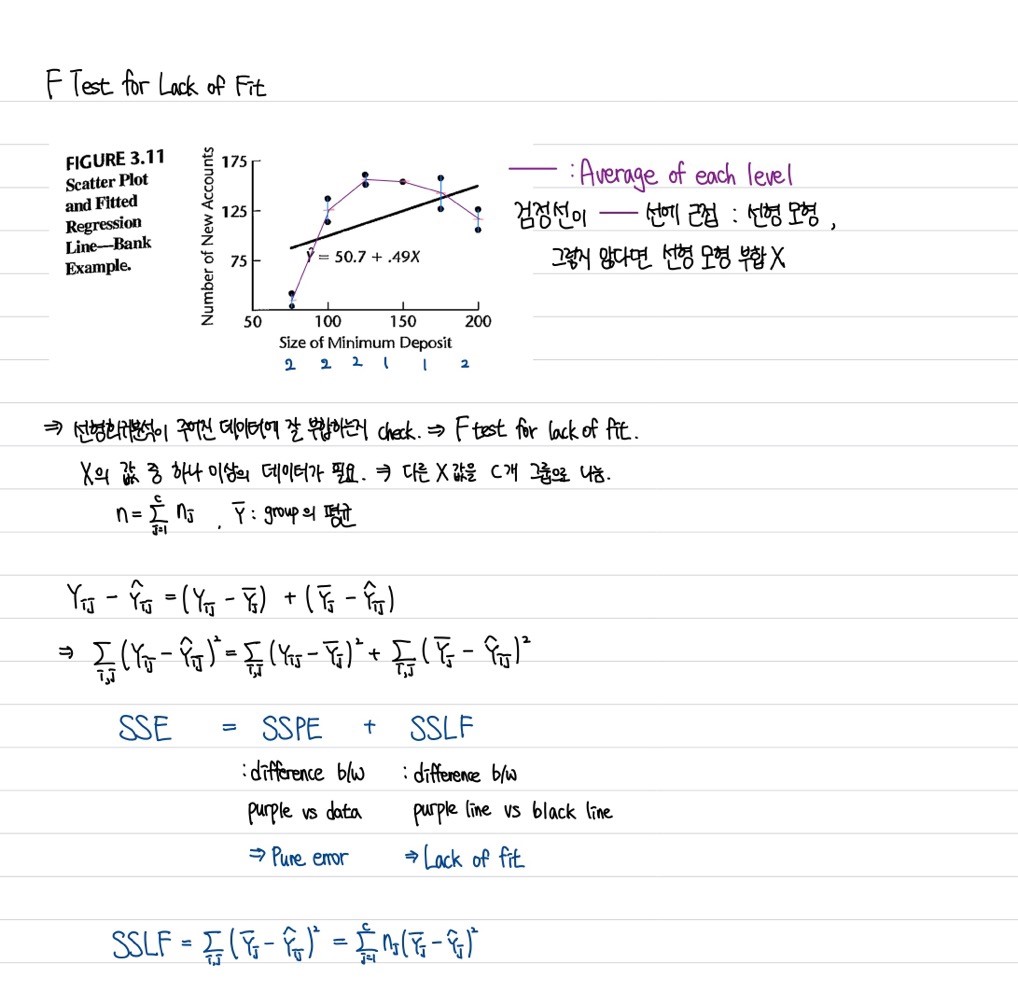 F Test for Lack of Fit
FIGURE 3.11
Scatter Plot
and Fitted
Regression
Line—Bank
Example.
Number of New Accounts
175
125
75
Ŷ = 50.7 + .49X
50 100 150 200
Size of Minimum Deposit
2 2 2 1 1 2
— : Average of each level
검정선이 — 선에 근접 : 선형 모형,
그렇지 않다면 선형 모형 부합 X
⇒ 선형회귀분석이 주어진 데이터에 잘 부합하는지 check. ⇒ F test for lack of fit.
X의 값 중 하나 이상의 데이터가 필요. ⇒ 다른 X값을 C개 그룹으로 나눔.
n = Σ_{j=1}^{c} n_j , Ȳ : group의 평균
Y_{ij} - Ŷ_{ij} = (Y_{ij} - Ȳ_j) + (Ȳ_j - Ŷ_{ij})
⇒ Σ_{i,j} (Y_{ij} - Ŷ_{ij})² = Σ_{i,j} (Y_{ij} - Ȳ_j)² + Σ_{i,j} (Ȳ_j - Ŷ_{ij})²
SSE = SSPE + SSLF
: difference b/w : difference b/w
purple vs data purple line vs black line
⇒ Pure error ⇒ Lack of fit
SSLF = Σ_{i,j} (Ȳ_j - Ŷ_{ij})² = Σ_{j=1}^{c} n_j (Ȳ_j - Ŷ_j)²